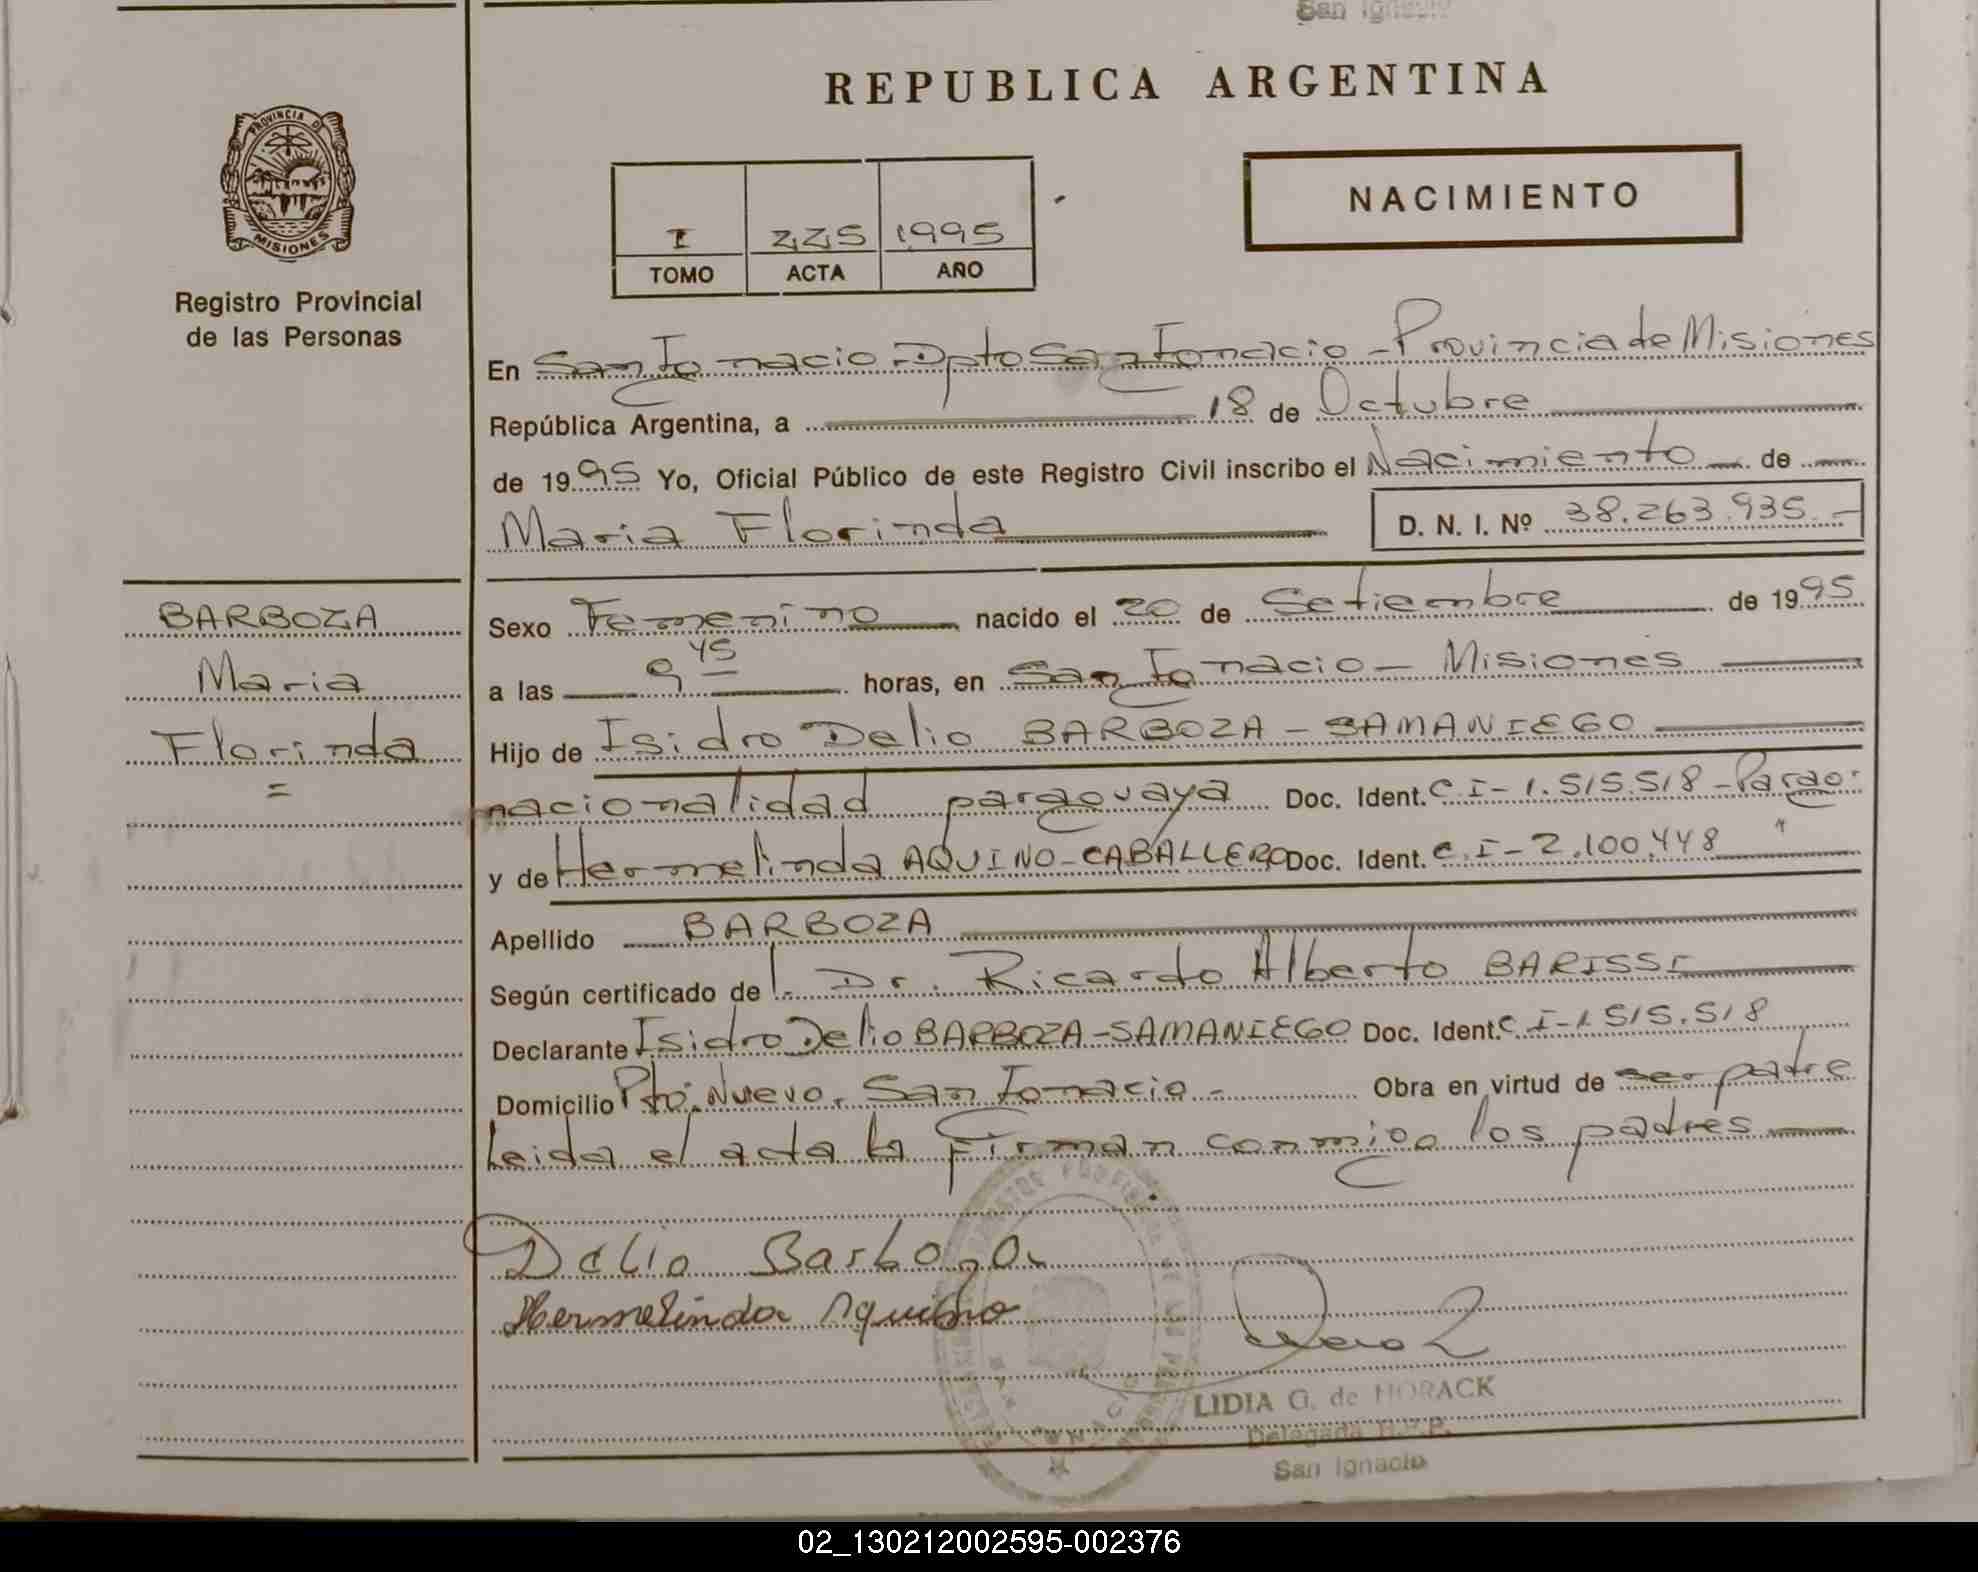 San Ignacio
REPUBLICA ARGENTINA
PROVINCIA D
MISIONES
Registro Provincial
de las Personas
I 225 1995
TOMO ACTA AÑO
NACIMIENTO
En San Ignacio - Dpto San Ignacio - Provincia de Misiones
República Argentina, a 18 de Octubre
de 1995 Yo, Oficial Público de este Registro Civil inscribo el Nacimiento de
Maria Florinda D. N. I. Nº 38.263.935.-
BARBOZA
Maria
Florinda
=
Sexo Femenino nacido el 20 de Setiembre de 1995
a las 9 45 horas, en San Ignacio - Misiones
Hijo de Isidro Delio BARBOZA - SAMANIEGO
nacionalidad paraguaya Doc. Ident. C.I - 1.515.518 - Parag.
y de Hermelinda AQUINO - CABALLERO Doc. Ident. C.I - 2.100.448 "
Apellido BARBOZA
Según certificado del Dr. Ricardo Alberto BARISSI
Declarante Isidro Delio BARBOZA - SAMANIEGO Doc. Ident. C.I - 1.515.518
Domicilio Pto. Nuevo. San Ignacio - Obra en virtud de ser padre
Leida el acta la Firman conmigo los padres
Delio Barboza
Hermelinda Aquino
LIDIA G. de HORACK
Delegada R.P.P.
San Ignacio
02_130212002595-002376